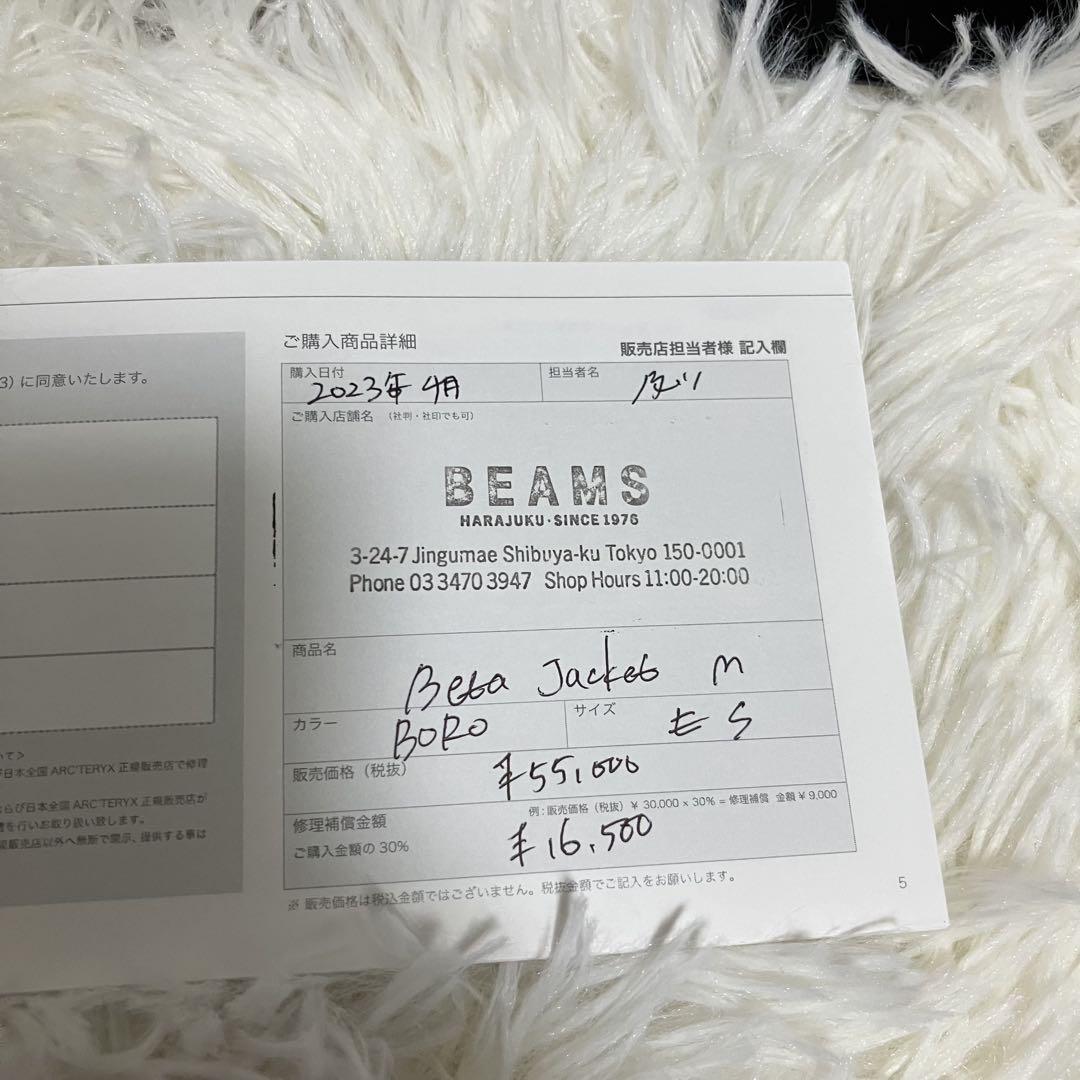 3) に同意いたします。
いて>
び日本全国 ARC'TERYX 正規販売店で修理
らび日本全国 ARC'TERYX 正規販売店が
を行いお取り扱い致します。
販売店以外へ無断で開示、提供する事は
ご購入商品詳細
販売店担当者様 記入欄
購入日付
2023年4月
担当者名
ご購入店舗名 (社判・社印でも可)
BEAMS
HARAJUKU・SINCE 1976
3-24-7 Jingumae Shibuya-ku Tokyo 150-0001
Phone 03 3470 3947 Shop Hours 11:00-20:00
商品名
Beta Jacket M
カラー
BORO
サイズ
S
販売価格(税抜)
¥55,000
例:販売価格(税抜)¥30,000 x 30% = 修理補償 金額¥9,000
修理補償金額
ご購入金額の30%
¥16,500
※ 販売価格は税込金額ではございません。税抜金額でご記入をお願いします。
5